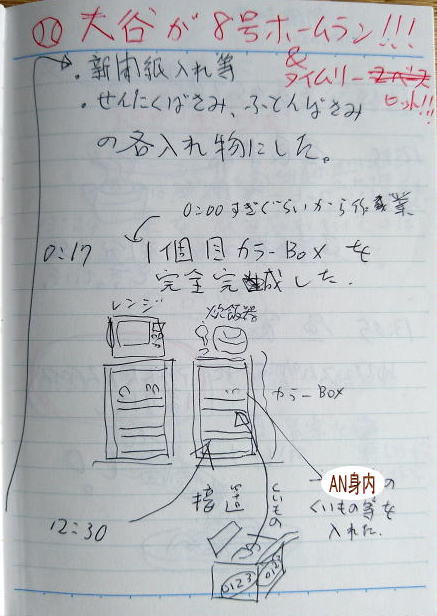 大谷が8号ホームラン!!!
&
タイムリー
ヒット!!!
・新聞紙入れ等
・せんたくばさみ、ふとんばさみ
の各入れ物にした。
0:00すぎぐらいから作業
0:17
1個目カラーBOXを
完全完成した.
レンジ
炊飯器
カラーBOX
AN身内の
くいもの等を
入れた.
くいもの
12:30
0123
0123